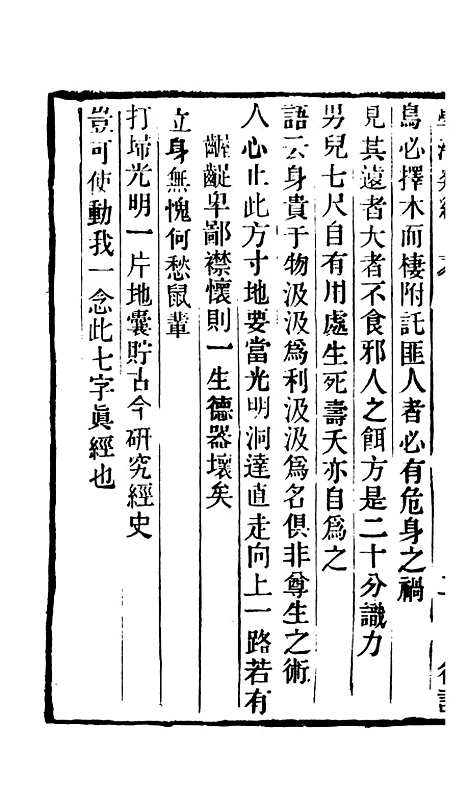 鳥必擇木而棲附託匪人者必有危身之禍
見其遠者大者不食邪人之餌方是二十分識力
男兒七尺自有用處生死壽夭亦自爲之
語云身貴于物汲汲爲利汲汲爲名俱非尊生之術
人心止此方寸地要當光明洞達直走向上一路若有
齷齪卑鄙襟懷則一生德器壞矣
立身無愧何愁鼠輩
打埽光明一片地囊貯古今研究經史
豈可使動我一念此七字眞經也